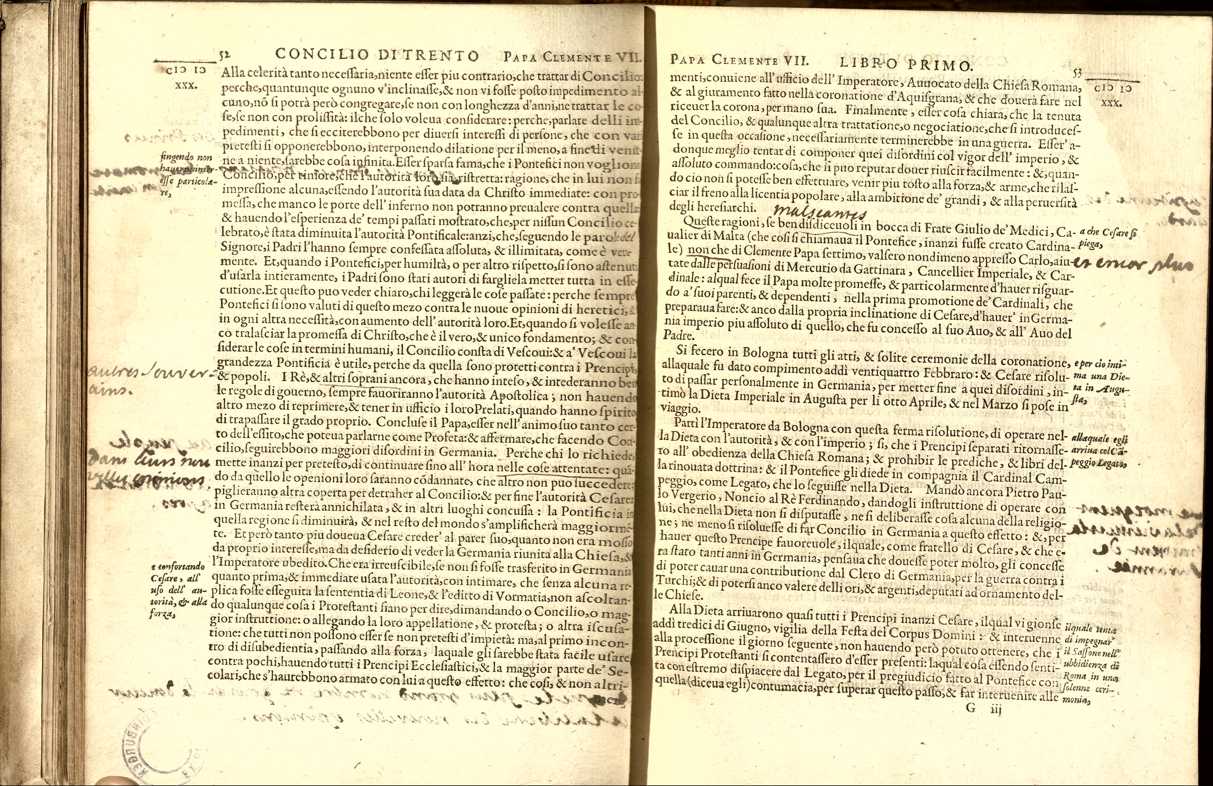 52 CONCILIO DI TRENTO PAPA CLEMENTE VII.
CIↃ IↃ
XXX.
Alla celerità tanto necessaria,niente esser piu contrario,che trattar di Concilio:
perche,quantunque ognuno v'inclinasse,& non vi fosse posto impedimento al
cuno,nō si potrà però congregare,se non con longhezza d'anni,ne trattar le co
se,se non con prolissità: ilche solo voleua considerare: perche,parlare delli im
pedimenti, che si ecciterebbono per diuersi interessi di persone, che con varij
pretesti si opponerebbono, interponendo dilatione per il meno, a fine di venir
ne a niente,sarebbe cosa infinita.Esser sparsa fama,che i Pontefici non vogliono
Concilio,per timore,che l'autorità loro sia ristretta: ragione, che in lui non fa
impressione alcuna,essendo l'autorità sua data da Christo immediate: con pro
messa,che manco le porte dell' inferno non potranno preualere contra quella:
& hauendo l'esperienza de' tempi passati mostrato,che,per nissun Concilio ce
lebrato,è stata diminuita l'autorità Pontificale:anzi,che,seguendo le parole del
Signore,i Padri l'hanno sempre confessata assoluta, & illimitata, come è vera
mente. Et,quando i Pontefici,per humiltà, o per altro rispetto,si sono astenuti
d'usarla intieramente, i Padri sono stati autori di fargliela metter tutta in esse
cutione.Et questo puo veder chiaro,chi leggerà le cose passate: perche sempre
Pontefici si sono valuti di questo mezo contra le nuoue opinioni di heretici, &
in ogni altra necessità,con aumento dell' autorità loro.Et,quando si volesse an
co tralasciar la promessa di Christo,che è il vero,& unico fondamento; & con
siderar le cose in termini humani, il Concilio consta di Vescoui:& a' Vescoui la
grandezza Pontificia è utile,perche da quella sono protetti contra i Prencipi,
& popoli. I Rè,& altri soprani ancora,che hanno inteso,& intederanno ben
le regole di gouerno, sempre fauoriranno l'autorità Apostolica; non hauendo
altro mezo di reprimere,& tener in ufficio i loro Prelati,quando hanno spirito
di trapassare il grado proprio. Concluse il Papa,esser nell'animo suo tanto cer
to dell'essito,che poteua parlarne come Profeta:& affermare,che facendo Con
cilio,seguirebbono maggiori disordini in Germania. Perche chi lo richiede,
mette inanzi per pretesto,di continuare sino all' hora nelle cose attentate: quā
do da quello le openioni loro saranno cōdannate, che altro non puo succedere,
piglieranno altra coperta per detraher al Concilio:& per fine l'autorità Cesarea
in Germania resterà annichilata, & in altri luoghi concussa: la Pontificia in
quella regione si diminuirà, & nel resto del mondo s'amplificherà maggiormē
te. Et però tanto piu doueua Cesare creder' al parer suo,quanto non era mosso
da proprio interesse,ma da desiderio di veder la Germania riunita alla Chiesa,&
l'Imperatore ubedito.Che era irreuscibile,se non si fosse trasferito in Germania
quanto prima,& immediate usata l'autorità,con intimare, che senza alcuna re
plica fosse esseguita la sententia di Leone,& l'editto di Vormatia,non ascoltan
do qualunque cosa i Protestanti siano per dire,dimandando o Concilio,o mag
gior instruttione: o allegando la loro appellatione, & protesta; o altra iscusa-
tione: che tutti non possono esser se non pretesti d'impietà: ma,al primo incon-
tro di disubedientia, passando alla forza, laquale gli sarebbe stata facile usare
contra pochi,hauendo tutti i Prencipi Ecclesiastici,& la maggior parte de' Se-
colari,che s'haurebbono armato con lui a questo effetto: che cosi, & non altri-
fingendo non
hauer timor
esse particola-
re,
autres Souver-
ains.
e confortando
Cesare, all'
uso dell' au-
torità, & alla
forza,
PAPA CLEMENTE VII. LIBRO PRIMO. 53
CIↃ IↃ
XXX.
menti,conuiene all' ufficio dell' Imperatore, Auuocato della Chiesa Romana,
& al giuramento fatto nella coronatione d'Aquisgrana, & che douerà fare nel
riceuer la corona, per mano sua. Finalmente, esser cosa chiara, che la tenuta
del Concilio, & qualunque altra trattatione, o negotiatione,che si introduces-
se in questa occasione, necessariamente terminerebbe in una guerra. Esser' a-
donque meglio tentar di componer quei disordini col vigor dell' imperio, &
assoluto commando:cosa,che si puo reputar douer riuscir facilmente: &, quan-
do cio non si potesse ben effettuare, venir piu tosto alla forza,& arme,che rilas-
ciar il freno alla licentia popolare, alla ambitione de' grandi, & alla peruersità
degli heresiarchi.
malseantes
Queste ragioni, se ben disdiceuoli in bocca di Frate Giulio de' Medici, Ca-
ualier di Malta (che cosi si chiamaua il Pontefice, inanzi fusse creato Cardina-
le) non che di Clemente Papa settimo, valsero nondimeno appresso Carlo,aiu-
tate dalle persuasioni di Mercurio da Gattinara, Cancellier Imperiale, & Car-
dinale: alqual fece il Papa molte promesse, & particolarmente d'hauer risguar-
do a' suoi parenti, & dependenti, nella prima promotione de' Cardinali, che
preparaua fare:& anco dalla propria inclinatione di Cesare,d'hauer' in Germa-
nia imperio piu assoluto di quello, che fu concesso al suo Auo, & all' Auo del
Padre.
Si fecero in Bologna tutti gli atti, & solite ceremonie della coronatione,
allaquale fu dato compimento addì ventiquattro Febbraro: & Cesare risolu-
to di passar personalmente in Germania, per metter fine a quei disordini, in-
timò la Dieta Imperiale in Augusta per li otto Aprile, & nel Marzo si pose in
viaggio.
Partì l'Imperatore da Bologna con questa ferma risolutione, di operare nel-
la Dieta con l'autorità, & con l'imperio; sì, che i Prencipi separati ritornasse-
ro all' obedienza della Chiesa Romana; & prohibir le prediche, & libri del-
la rinouata dottrina: & il Pontefice gli diede in compagnia il Cardinal Cam-
peggio, come Legato, che lo seguisse nella Dieta. Mandò ancora Pietro Pau-
lo Vergerio, Noncio al Rè Ferdinando, dandogli instruttione di operare con
lui, che nella Dieta non si disputasse, ne si deliberasse cosa alcuna della religio-
ne; ne meno si risoluesse di far Concilio in Germania a questo effetto: &, per
hauer questo Prencipe fauoreuole, ilquale, come fratello di Cesare, & che e-
ra stato tanti anni in Germania, pensaua che douesse poter molto, gli concesse
di poter cauar una contributione dal Clero di Germania,per la guerra contra i
Turchi;& di potersi anco valere delli ori,& argenti,deputati ad ornamento del-
le Chiese.
Alla Dieta arriuarono quasi tutti i Prencipi inanzi Cesare, ilqual vi gionse
addì tredici di Giugno, vigilia della Festa del Corpus Domini: & interuenne
alla processione il giorno seguente, non hauendo però potuto ottenere, che i
Prencipi Protestanti si contentassero d'esser presenti: laqual cosa essendo senti-
ta con estremo dispiacere dal Legato, per il pregiudicio fatto al Pontefice con
quella (diceua egli) contumacia, per superar questo passo, & far interuenire alle
G iij
a che Cesare si
piega,
et encor plus
e per cio inti-
ma una Die-
ta in Augu-
sta,
allaquale egli
arriua col Cā-
peggio Legato,
ilquale tenta
di impegnar'
il Sassone nell'
ubbidienza di
Roma in una
solenne ceri-
monia,